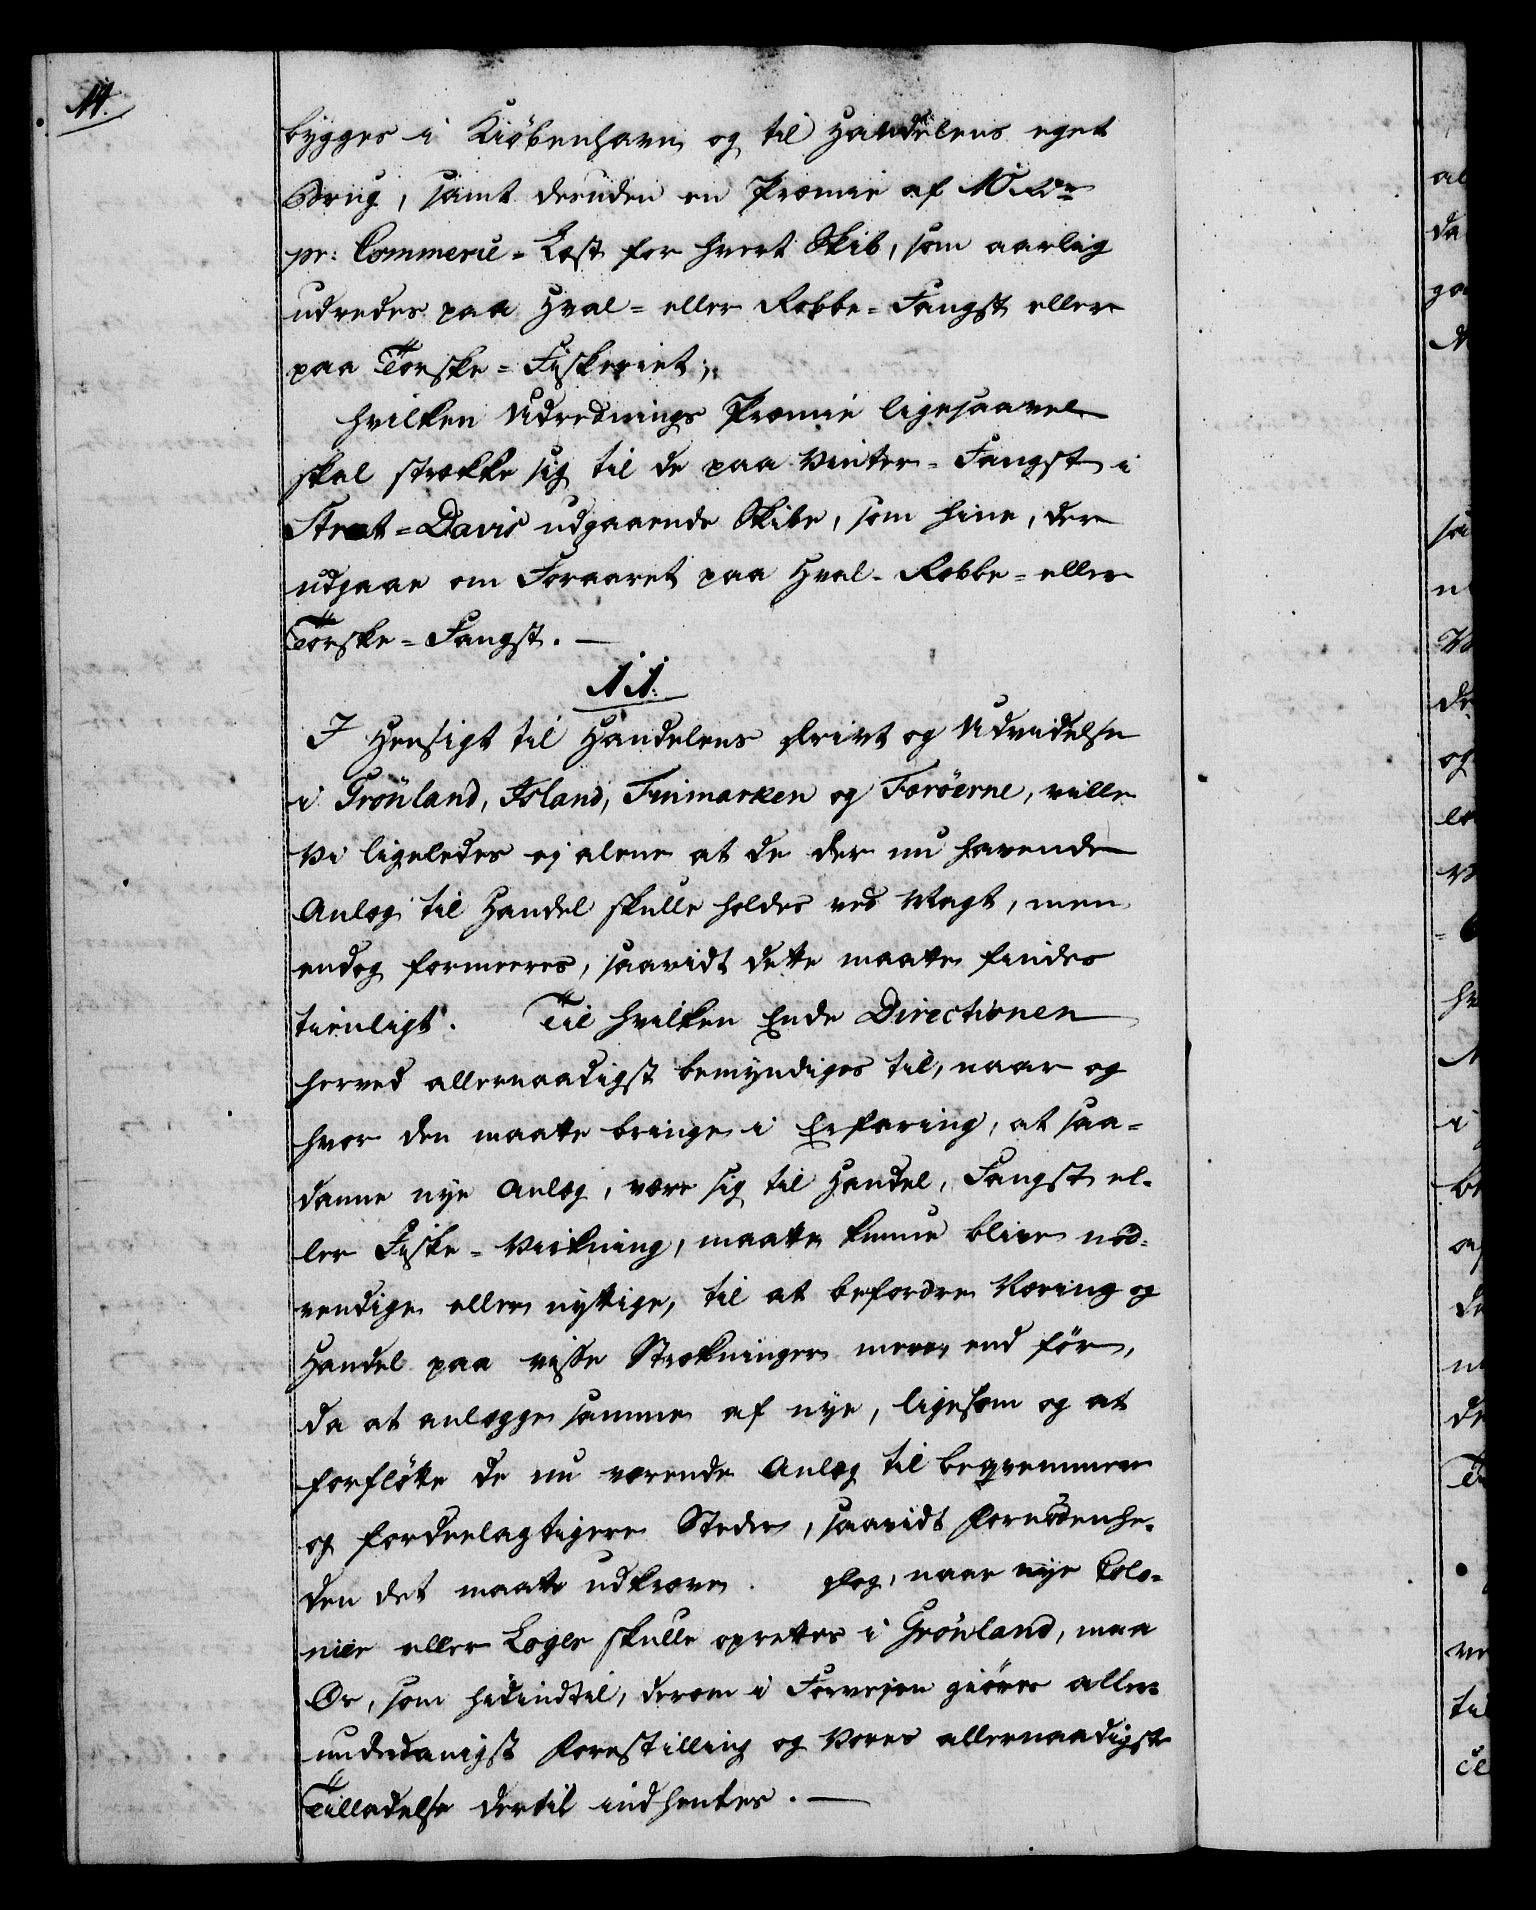 11.
bygges i Kiöbenhavn og til Handelens eget
Brug, samt desuden en Præmie af 10 Rdr
pr: Commerce-Læst for hvert Skib, som aarlig
udredes paa Hval- eller Robbe-Fangst eller
paa Torske-Fiskeriet;
hvilken Udrednings Præmie ligesaavel
skal strække sig til de paa Vinter-Fangst i
Strat-Davis udgaaende Skibe, som hine, der
udgaae om Foraaret paa Hval- Robbe- eller
Torske-Fangst. —
11.
I Hensigt til Handelens Drivt og Udvidelse
i Grönland, Island, Finmarken og Færöerne, ville
Vi ligeledes ej alene at de der nu havende
Anlæg til Handel skulle holdes ved Magt, men
endog formeeres, saavidt dette maatte findes
tienligt. Til hvilken Ende Directionen
herved allernaadigst bemyndiges til, naar og
hvor den maatte bringe i Erfaring, at saa-
danne nye Anlæg, være sig til Handel, Fangst el-
ler Fiske-Virkning, maatte kunne blive nød-
vendige eller nyttige, til at befordre Næring og
Handel paa visse Strækninger meere end för,
da at anlægge samme af nye, ligesom og at
forflötte de nu værende Anlæg til beqvemmere
og fordeelagtigere Steder, saavidt Fornödenhe-
den det maatte udkræve. Dog, naar nye Colo-
nier eller Loger skulle oprettes i Grönland, maa
Os, som hidindtil, derom i Forvejen giöres aller-
underdanigst Forestilling og Vores allernaadigste
Tilladelse dertil indhentes. —